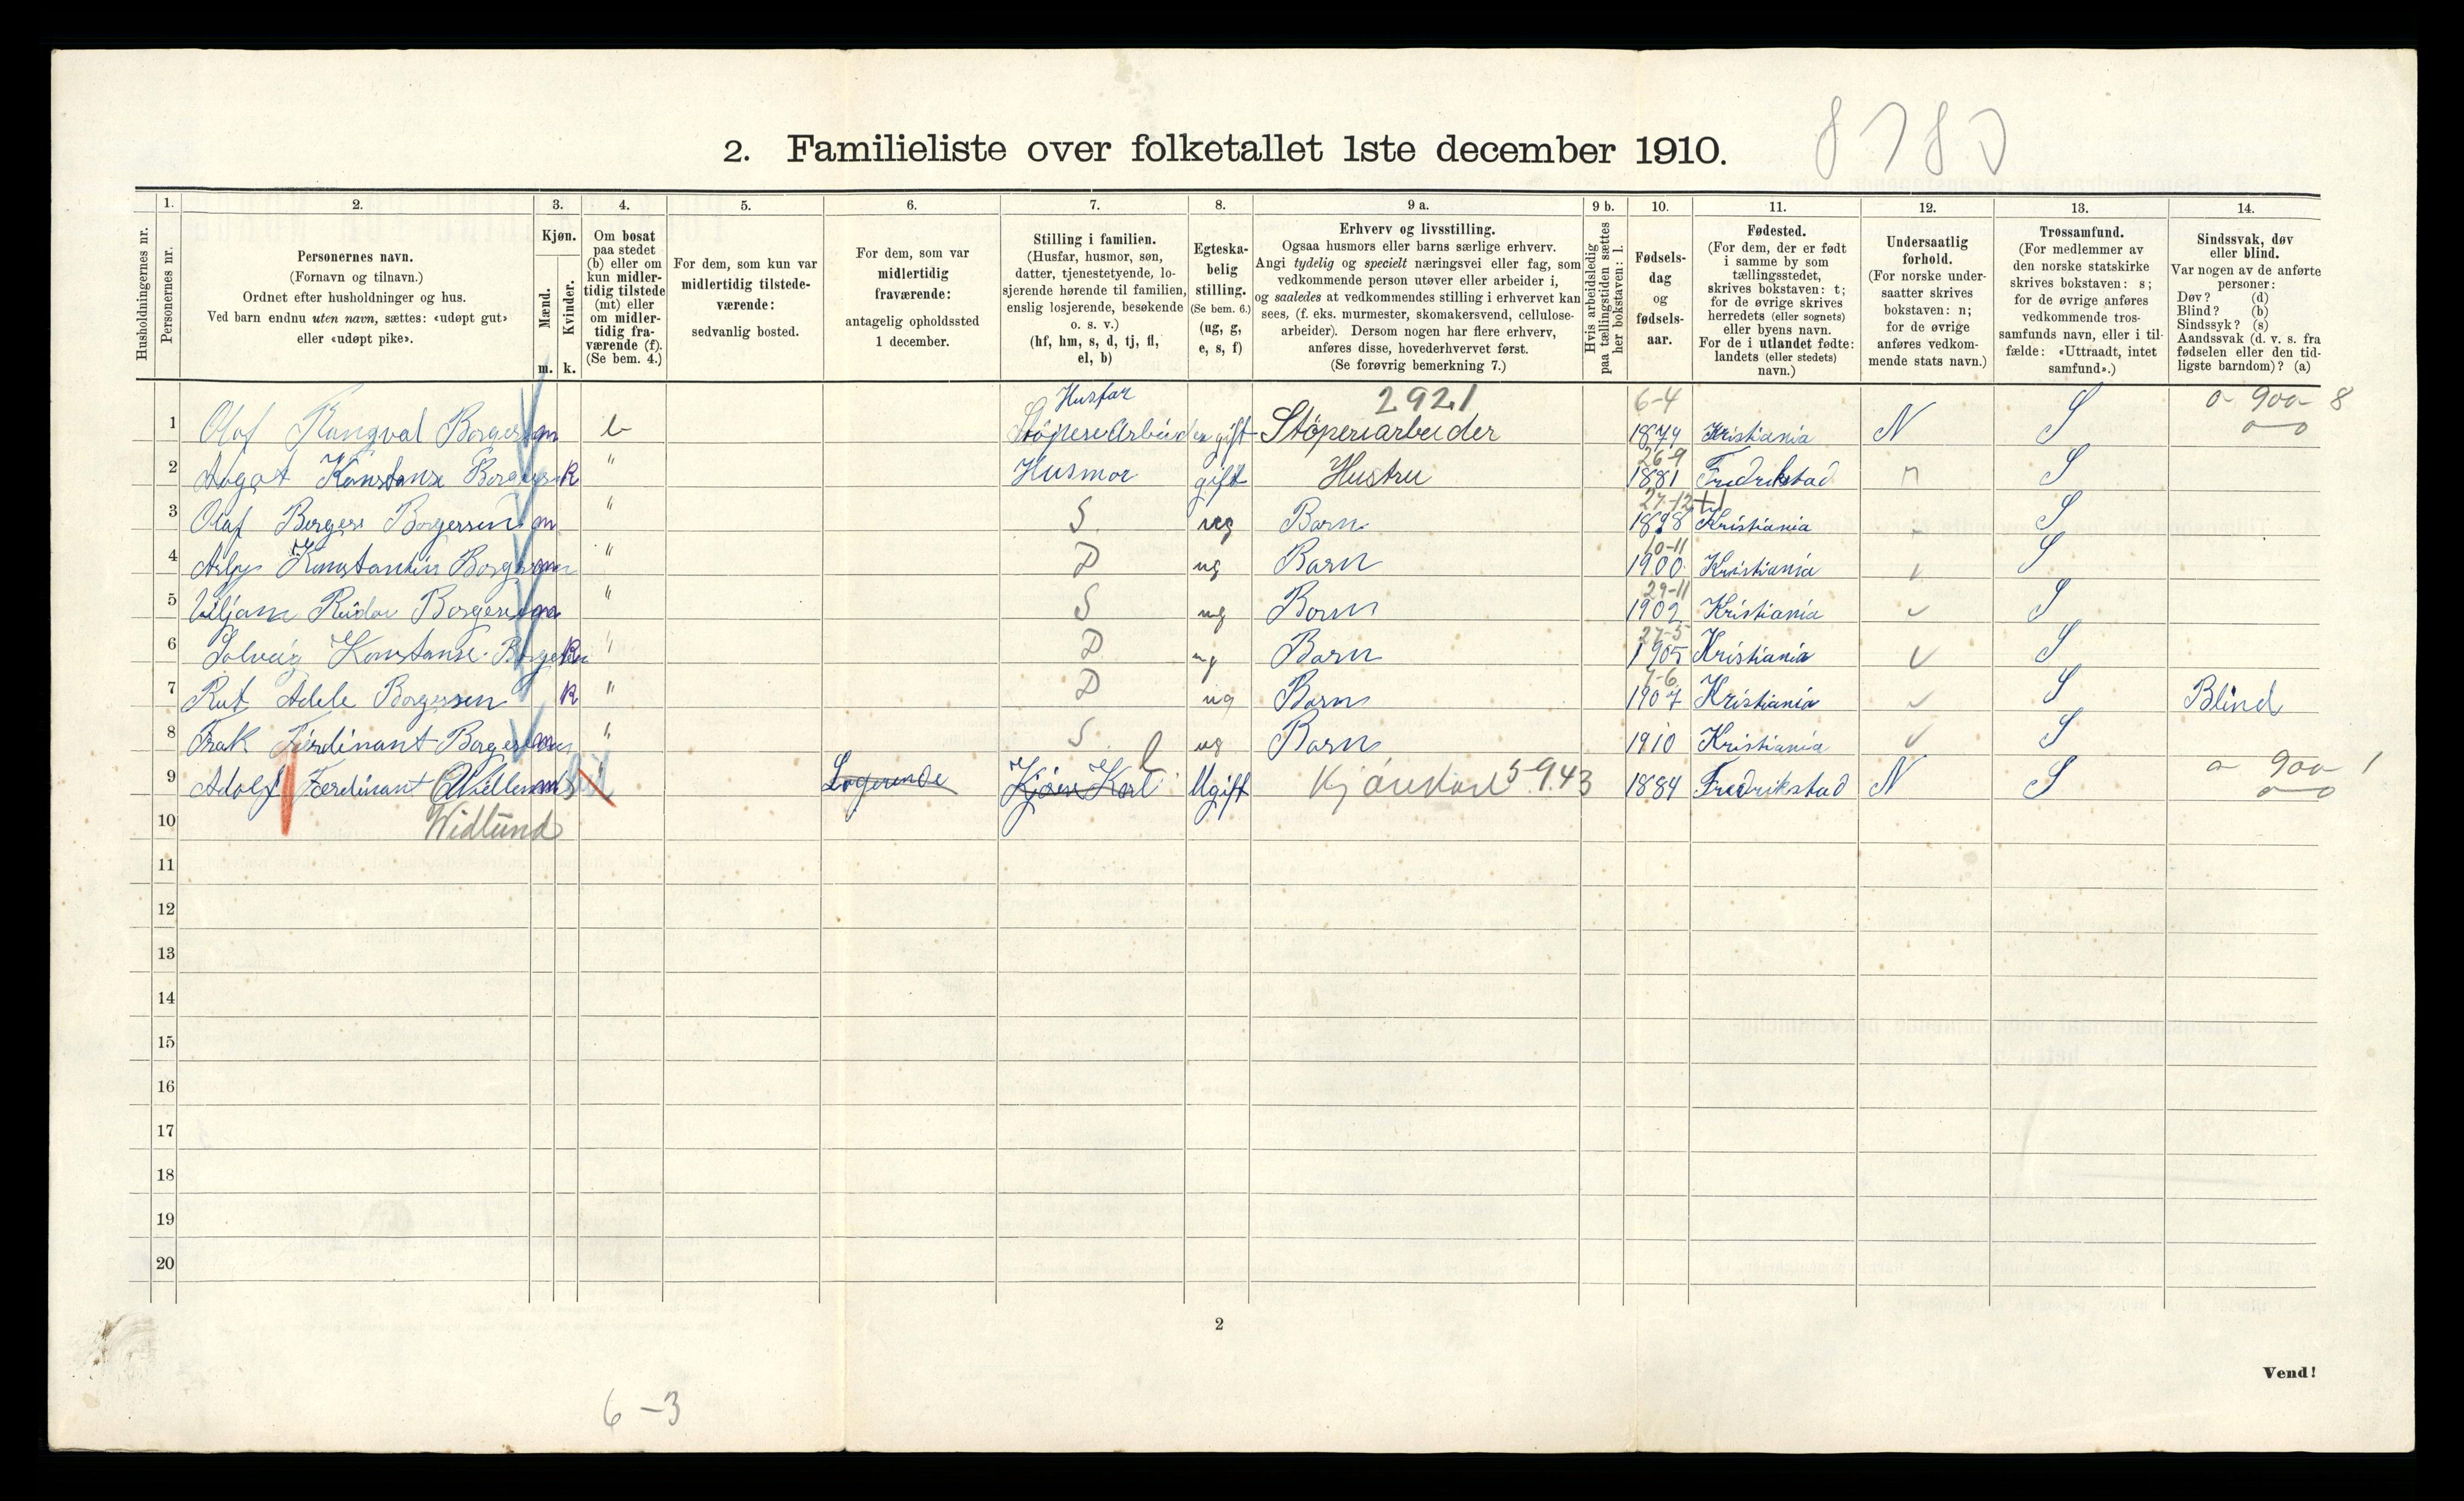 8783
2. Familieliste over folketallet 1ste december 1910.
1. 2. 3. 4. 5. 6. 7. 8. 9 a. 9 b. 10. 11. 12. 13. 14.
Husholdningernes nr.
Personernes nr.
Personernes navn.
(Fornavn og tilnavn.)
Ordnet efter husholdninger og hus.
Ved barn endnu uten navn, sættes: «udøpt gut»
eller «udøpt pike».
Kjøn.
Mænd.
Kvinder.
m. k.
Om bosat
paa stedet
(b) eller om
kun midler-
tidig tilstede
(mt) eller
om midler-
tidig fra-
værende (f).
(Se bem. 4.)
For dem, som kun var
midlertidig tilstede-
værende:
sedvanlig bosted.
For dem, som var
midlertidig
fraværende:
antagelig opholdssted
1 december.
Stilling i familien.
(Husfar, husmor, søn,
datter, tjenestetyende, lo-
sjerende hørende til familien,
enslig losjerende, besøkende
o. s. v.)
(hf, hm, s, d, tj, fl,
el, b)
Egteska-
belig
stilling.
(Se bem. 6.)
(ug, g,
e, s, f)
Erhverv og livsstilling.
Ogsaa husmors eller barns særlige erhverv.
Angi tydelig og specielt næringsvei eller fag, som
vedkommende person utøver eller arbeider i,
og saaledes at vedkommendes stilling i erhvervet kan
sees, (f. eks. murmester, skomakersvend, cellulose-
arbeider). Dersom nogen har flere erhverv,
anføres disse, hovederhvervet først.
(Se forøvrig bemerkning 7.)
Hvis arbeidsledig
paa tællingstiden sættes
her bokstaven: l.
Fødsels-
dag
og
fødsels-
aar.
Fødested.
(For dem, der er født
i samme by som
tællingsstedet,
skrives bokstaven: t;
for de øvrige skrives
herredets (eller sognets)
eller byens navn.
For de i utlandet fødte:
landets (eller stedets)
navn.)
Undersaatlig
forhold.
(For norske under-
saatter skrives
bokstaven: n;
for de øvrige
anføres vedkom-
mende stats navn.)
Trossamfund.
(For medlemmer av
den norske statskirke
skrives bokstaven: s;
for de øvrige anføres
vedkommende tros-
samfunds navn, eller i til-
fælde: «Uttraadt, intet
samfund».)
Sindssvak, døv
eller blind.
Var nogen av de anførte
personer:
Døv? (d)
Blind? (b)
Sindssyk? (s)
Aandssvak (d. v. s. fra
fødselen eller den tid-
ligste barndom)? (a)
Husfar 2921 6-4 0- 900- 8
1 Olaf Rangval Borgersen m b Støperi Arbeider gift Støperiarbeider 1879 Kristiania N S 0-0
26-9
2 Aagot Konstanse Borgersen k " Husmor gift Hustru 1881 Fredrikstad n S
27-12 +1
3 Olaf Birger Borgersen m " S ug Barn 1898 Kristiania S
10-11
4 Asbjø Konstantin Borgersen m " D ug Barn 1900 Kristiania S
29-11
5 Viljam Reidar Borgersen m " S ug Barn 1902 Kristiania S
27-5
6 Solveig Konstanse Borgersen k " D ug Barn 1905 Kristiania S
7-6
7 Rut Adele Borgersen k " D ug Barn 1907 Kristiania S Blind
8 Frak Ferdinant Borgersen m " S ug Barn 1910 Kristiania S
9 Adolf Ferdinant m Logerende Kjøre Karl l Ugift Kjørekarl 5-943 1884 Fredrikstad N S 0- 900- 1
0-0
10 Widlund
11
12
13
14
15
16
17
18
19
20
2
Vend!
6-3